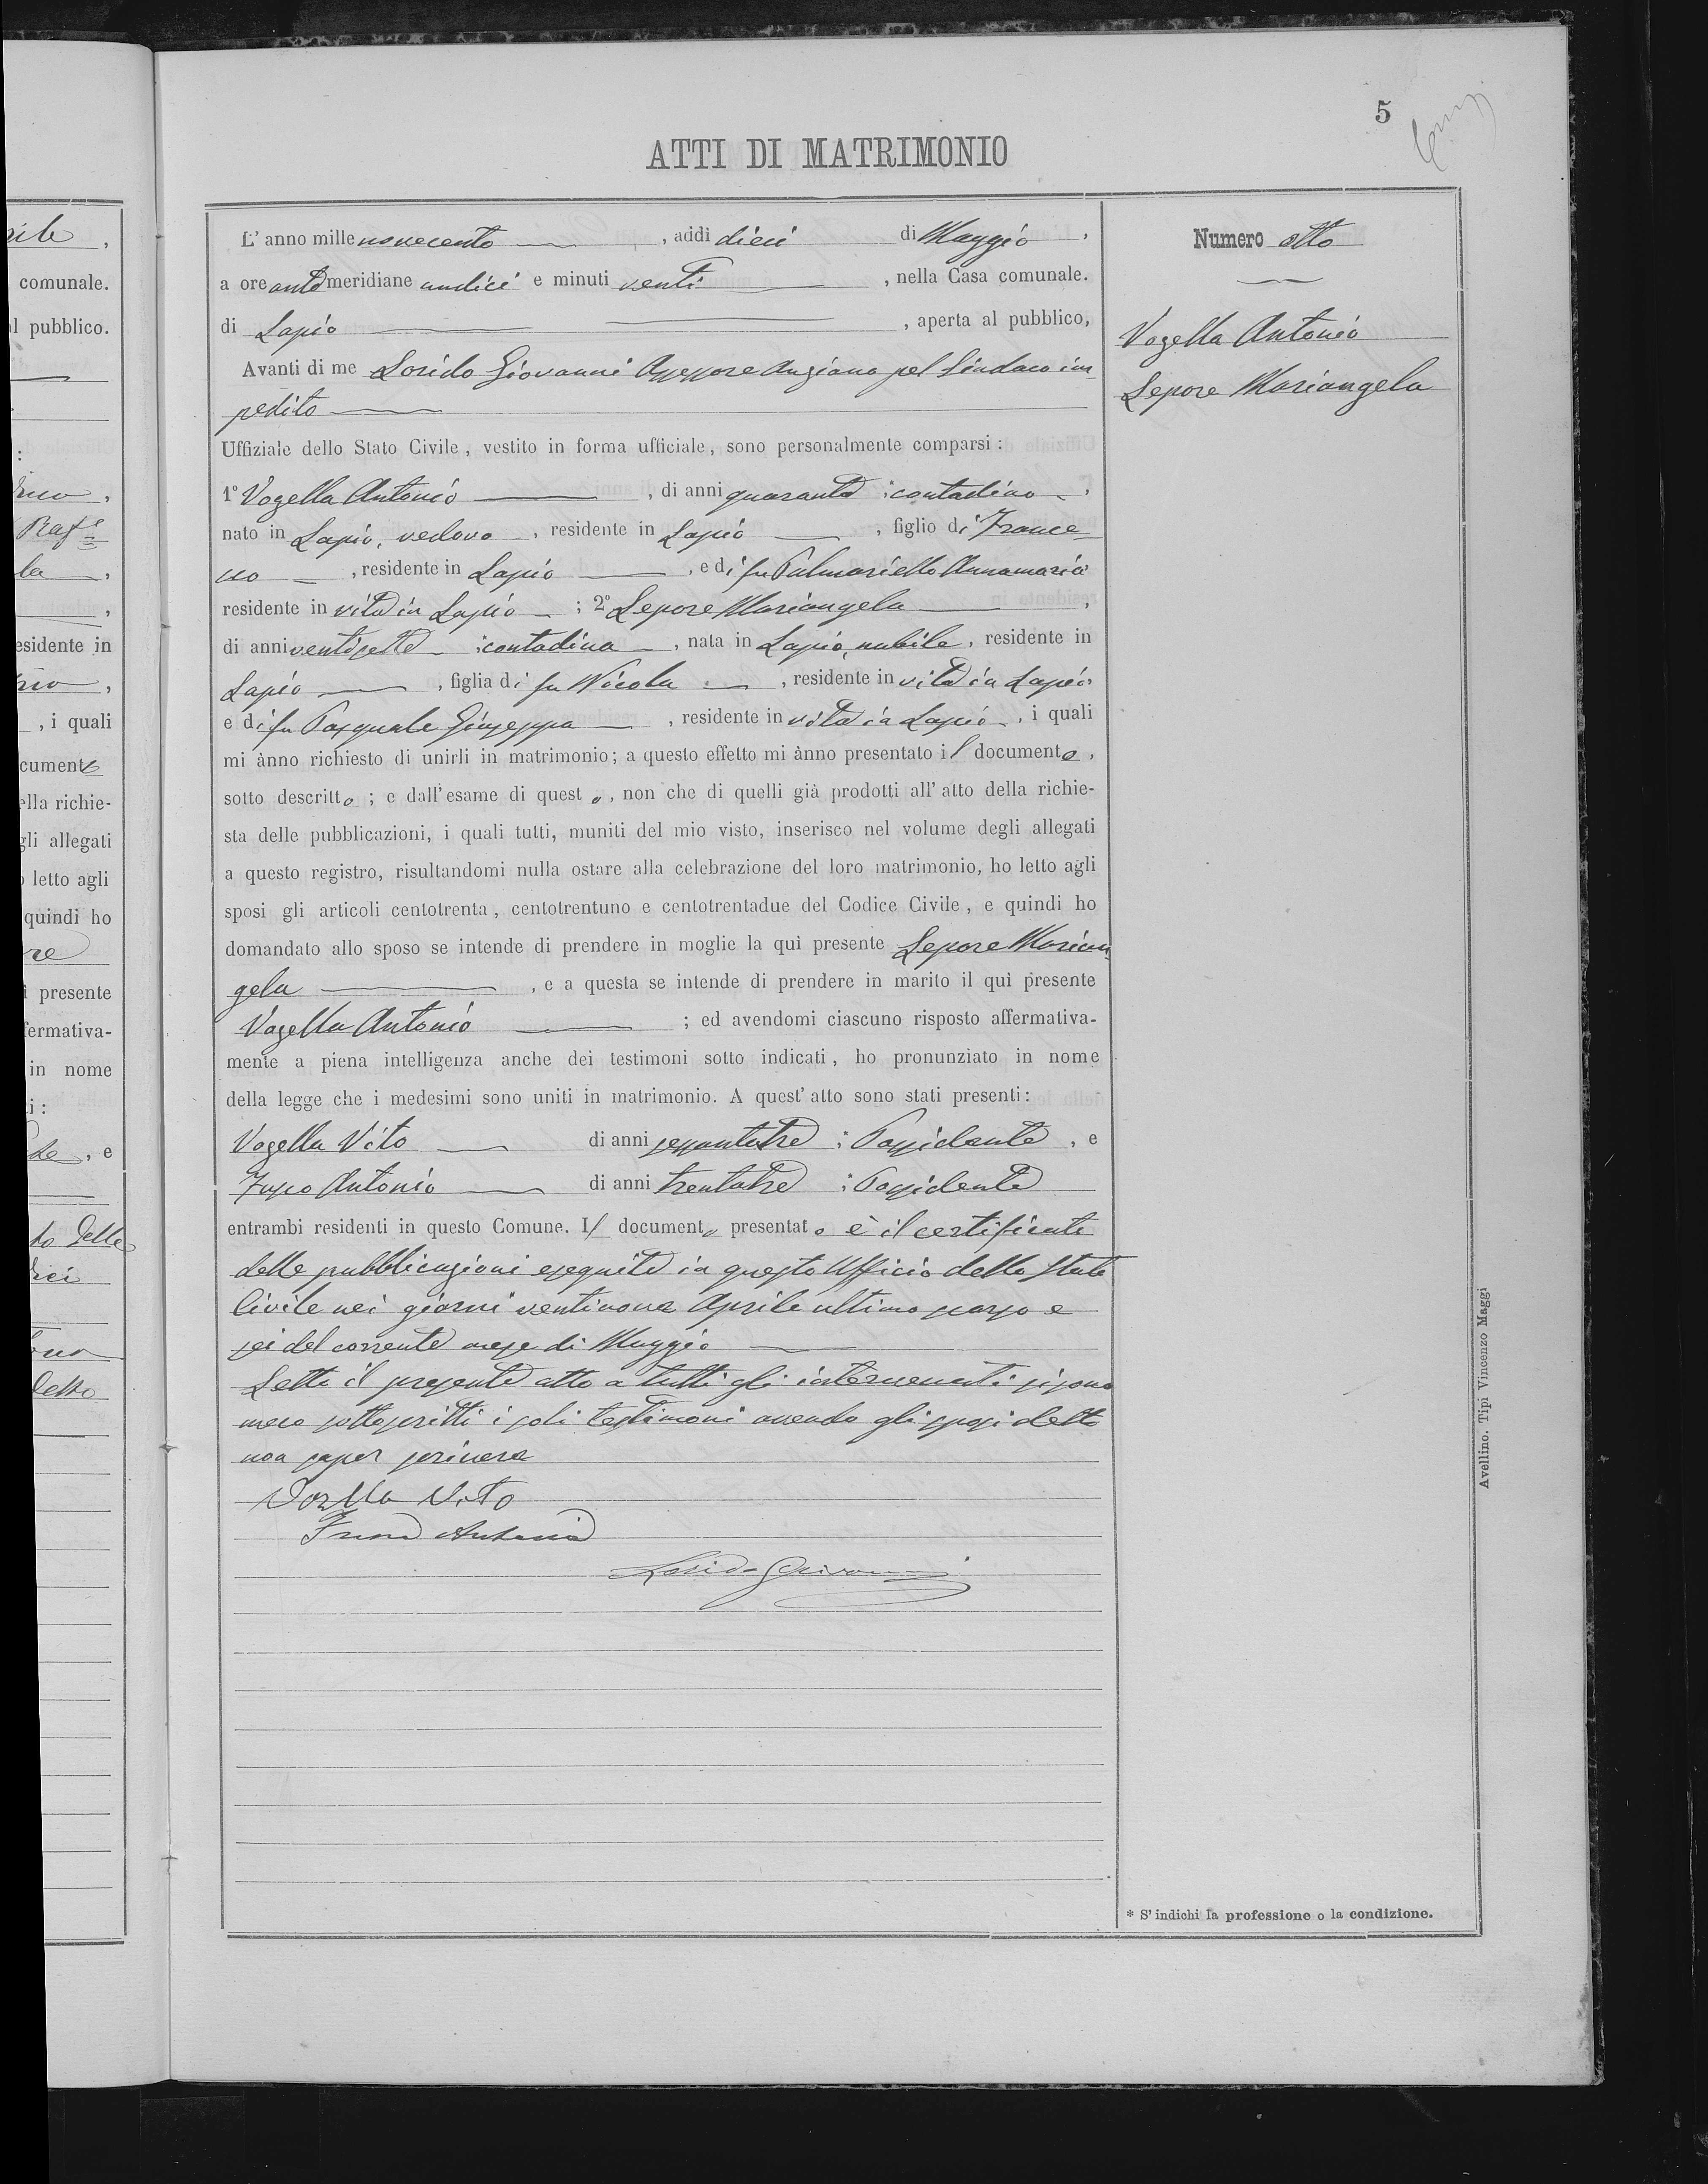 5
ATTI DI MATRIMONIO
L'anno mille novecento, addì dieci di Maggio,
a ore antemeridiane undici e minuti venti, nella Casa comunale.
di Lapio, aperta al pubblico,
Avanti di me Losido Giovanni Assessore Anziano pel Sindaco im
pedito
Uffiziale dello Stato Civile, vestito in forma ufficiale, sono personalmente comparsi:
1º Vozella Antonio, di anni quaranta; contadino,
nato in Lapio, vedovo, residente in Lapio, figlio di France
sco, residente in Lapio, e di fu Palmariello Annamaria
residente in vita in Lapio; 2º Lepore Mariangela,
di anni ventisette; contadina, nata in Lapio, nubile, residente in
Lapio, figlia di fu Nicola, residente in vita in Lapio
e di fu Pasquale Giuseppa, residente in vita in Lapio, i quali
mi ànno richiesto di unirli in matrimonio; a questo effetto mi ànno presentato il documento,
sotto descritto; e dall'esame di questo, non che di quelli già prodotti all'atto della richie-
sta delle pubblicazioni, i quali tutti, muniti del mio visto, inserisco nel volume degli allegati
a questo registro, risultandomi nulla ostare alla celebrazione del loro matrimonio, ho letto agli
sposi gli articoli centotrenta, centotrentuno e centotrentadue del Codice Civile, e quindi ho
domandato allo sposo se intende di prendere in moglie la qui presente Lepore Marian
gela, e a questa se intende di prendere in marito il qui presente
Vozella Antonio; ed avendomi ciascuno risposto affermativa-
mente a piena intelligenza anche dei testimoni sotto indicati, ho pronunziato in nome
della legge che i medesimi sono uniti in matrimonio. A quest'atto sono stati presenti:
Vozella Vito di anni sessantatre; Possidente, e
Fusco Antonio di anni trentatre; Possidente
entrambi residenti in questo Comune. Il documento presentato è il certificato
delle pubblicazioni eseguite in questo Ufficio dello Stato
Civile nei giorni ventinove Aprile ultimo scorso e
sei del corrente mese di Maggio
Letto il presente atto a tutti gli intervenuti si sono
meco sottoscritti i soli testimoni avendo gli sposi detto
non saper scrivere
Vozella Vito
Fusco Antonio
Losido Giovanni
Numero otto
Vozella Antonio
Lepore Mariangela
* S'indichi la professione o la condizione.
Avellino. Tipi Vincenzo Maggi